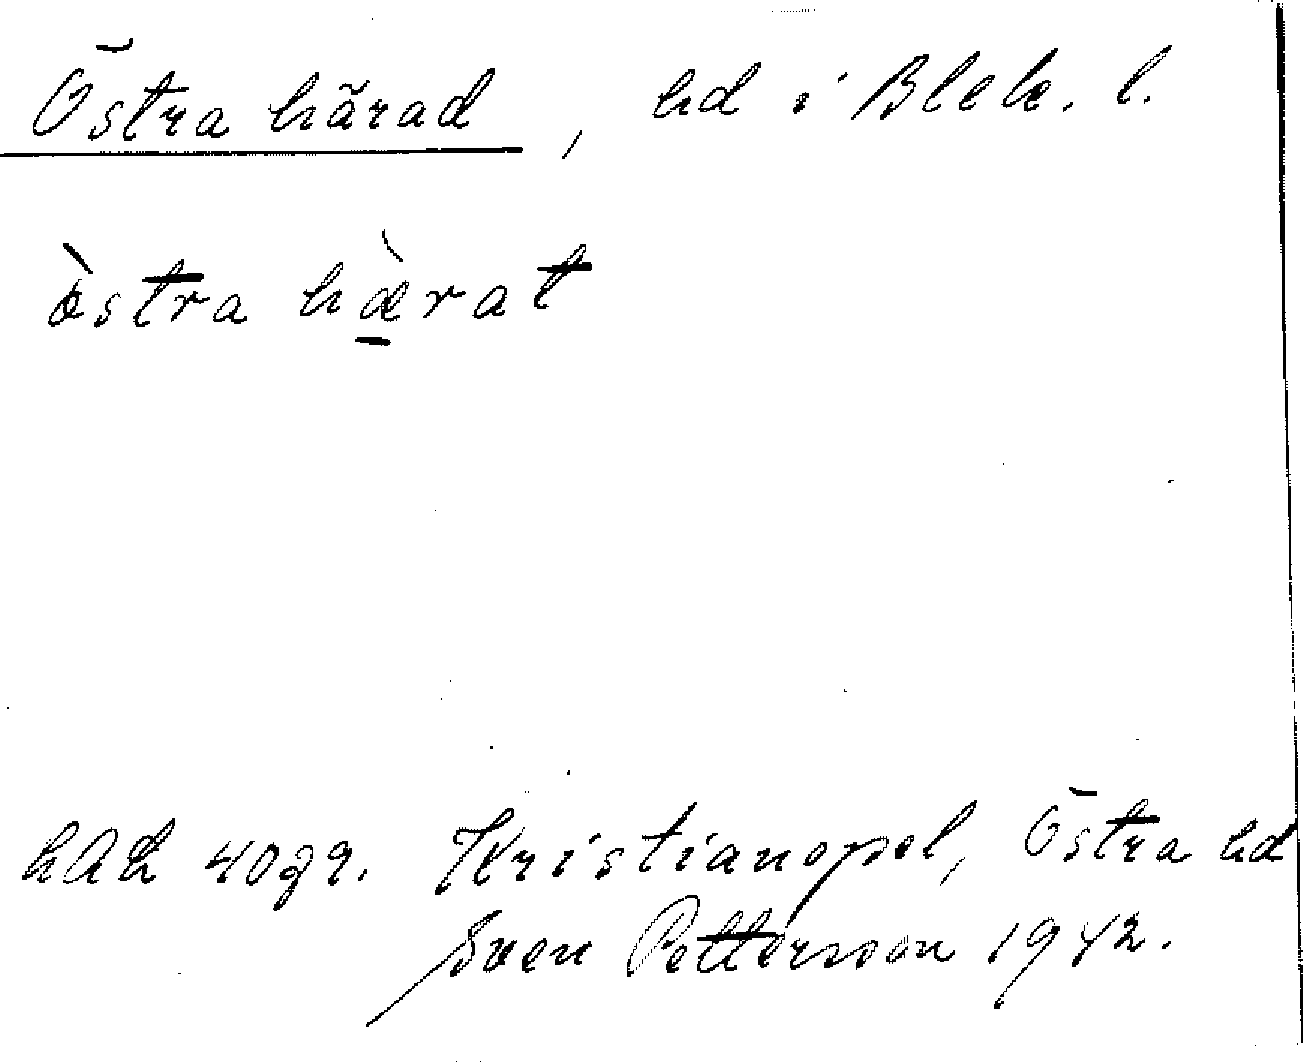 Östra härad, hd i Blek. l.
östra hærat
LAL 4079. Kristianopel, Östra hd
Sven Pettersson 1942.